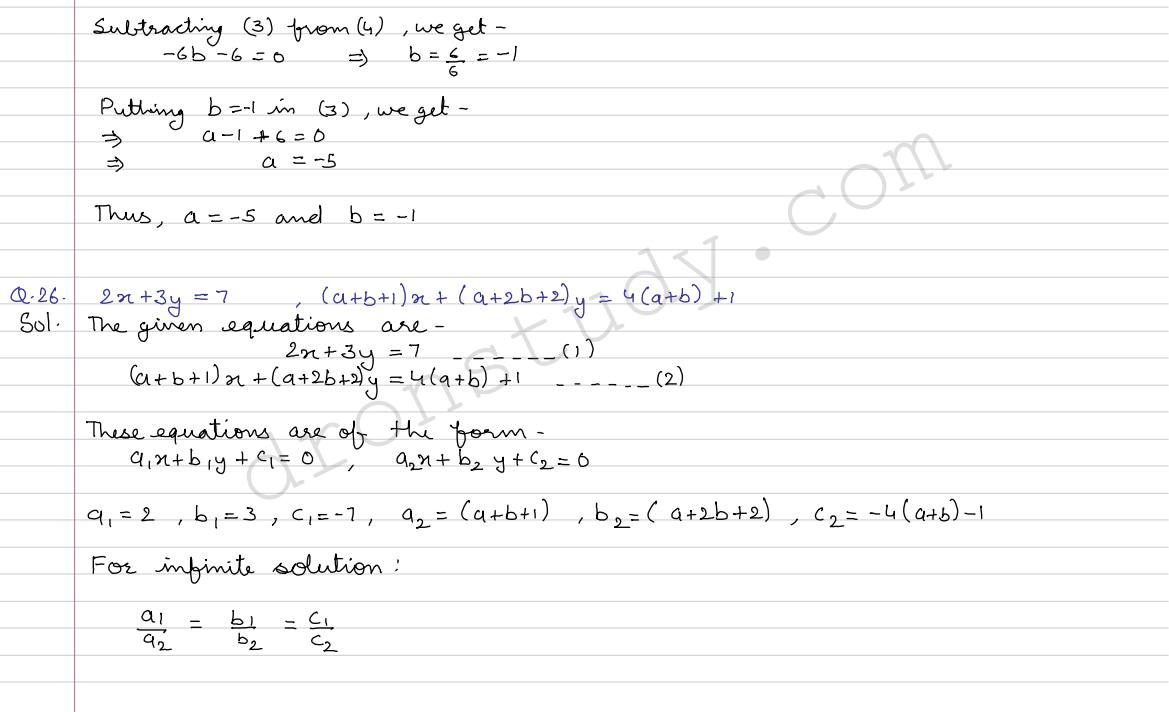 Subtracting (3) from (4), we get -
-6b - 6 = 0 ⇒ b = 6/6 = -1
Putting b = -1 in (3), we get -
⇒ a - 1 + 6 = 0
⇒ a = -5
Thus, a = -5 and b = -1
Q.26. 2x + 3y = 7 , (a+b+1)x + (a+2b+2)y = 4(a+b) + 1
Sol. The given equations are -
2x + 3y = 7 ------(1)
(a+b+1)x + (a+2b+2)y = 4(a+b) + 1 ------(2)
These equations are of the form -
a₁x + b₁y + c₁ = 0 , a₂x + b₂y + c₂ = 0
a₁ = 2 , b₁ = 3 , c₁ = -7 , a₂ = (a+b+1) , b₂ = (a+2b+2) , c₂ = -4(a+b) - 1
For infinite solution :
a₁/a₂ = b₁/b₂ = c₁/c₂
dronstudy.com